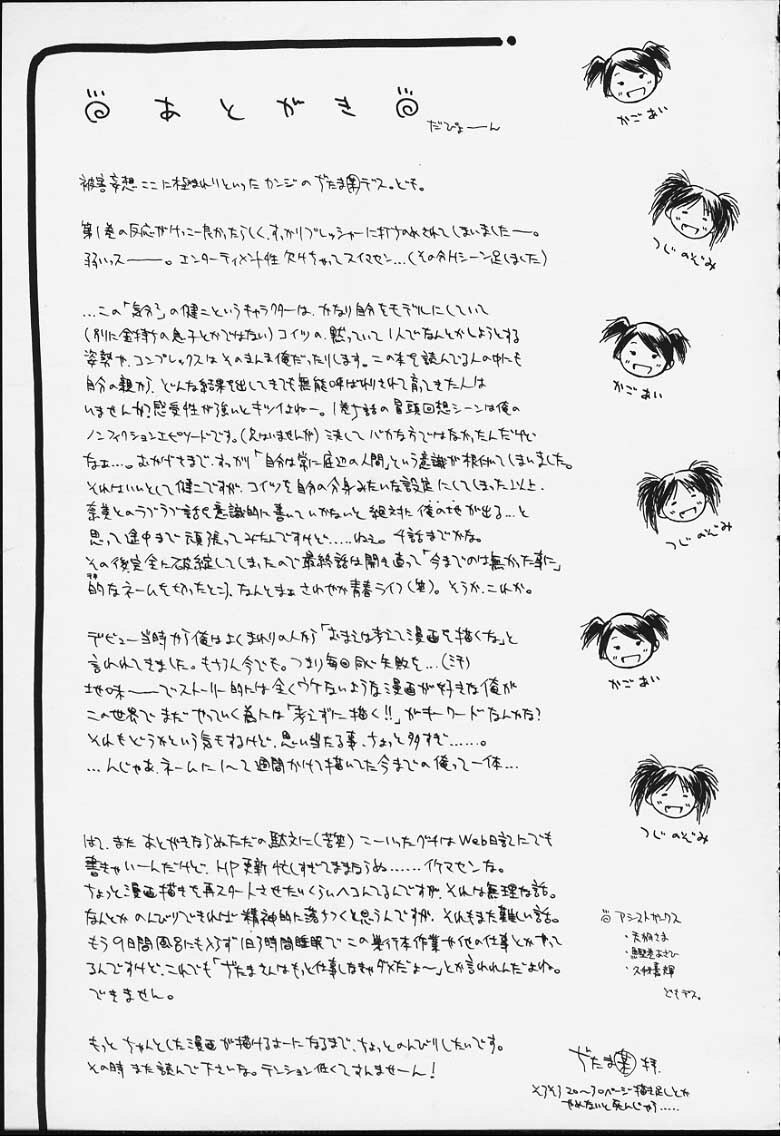 あとがき
だぴょーん
被害妄想ここに極まれりといったカンジのぢたま㊙デス。ども。
第1巻の反応がけっこー良かったらしく、すっかりプレッシャーに打ちのめされてしまいましたー。
弱いッスー。エンターティメント性欠けちゃってスイマセン…(その分Hシーン足しました)
…この「気分3」の健二というキャラクターは、かなり自分をモデルにしていて
(別に金持ちの息子とかではない)コイツの、黙っていて1人でなんとかしようとする
姿勢や、コンプレックスはそのまんま俺だったりします。この本を読んでる人の中にも
自分の親から、どんな結果を出してきても無能呼ばわりされて育ってきた人は
いませんか?感受性が強いとキツイよねー。1巻5話の冒頭回想シーンは俺の
ノンフィクションエピソードです。(兄はいませんが)決してバカな方ではなかったんだけど
なぁ…。おかげさまで、すっかり「自分は常に底辺の人間」という意識が根付いてしまいました。
それはいいとして健二ですが、コイツを自分の分身みたいな設定にしてしまった以上、
奈美とのラブラブ話を意識的に書いていかないと絶対に俺の地が出る…と
思って途中まで頑張ってみたんですけど……ねぇ。4話までかな。
その後完全に破綻してしまったので最終話は開き直って「今までのは無かった事に」
的なネームを切ったところ、なんとまぁさわやか青春ライフ(笑)。そうか、これか。
デビュー当時から俺はよくまわりの人から「おまえは考えて漫画を描くな」と
言われてきました。もちろん今でも。つまり毎回同じ失敗を…(ミ
地味ーでストーリー的には全くウケないような漫画が好きな俺が
この世界でまだやっていく為には「考えずに描く!!」がキーワードなんかな?
それもどうかという気もするけど、思い当たる事、ちょっと多すぎ……。
…んじゃあ、ネームに1〜2週間かけて描いてた今までの俺って一体…
はて、また あとがきならぬただの駄文に(苦笑)こーいったグチはWeb日記にでも
書きゃいーんだけど、HP更新忙しすぎてままならぬ……イケマセンな。
ちょっと漫画描きを再スタートさせたいくらいヘコんでるんですが、それは無理な話。
なんとかのんびりできれば精神的に落ちつくと思うんですが、それもまた難しい話。
もう9日間風呂にも入らず1日3時間睡眠でこの単行本作業や他の仕事とかやって
るんですけど、これでも「ぢたまさんはもっと仕事しなきゃダメだよ〜」とか言われんだよね。
できません。
もっとちゃんとした漫画が描けるよーになるまで、ちょっとのんびりしたいです。
その時また読んで下さいな。テンション低くてすんませーん!
かごあい
つじのぞみ
かごあい
つじのぞみ
かごあい
つじのぞみ
アシストサークス
・さま
・よさひ
・久村喜輝
どもデス。
ぢたま 拝
そろそろ20〜30ページ描き足しとか
やめないと死んじゃう……